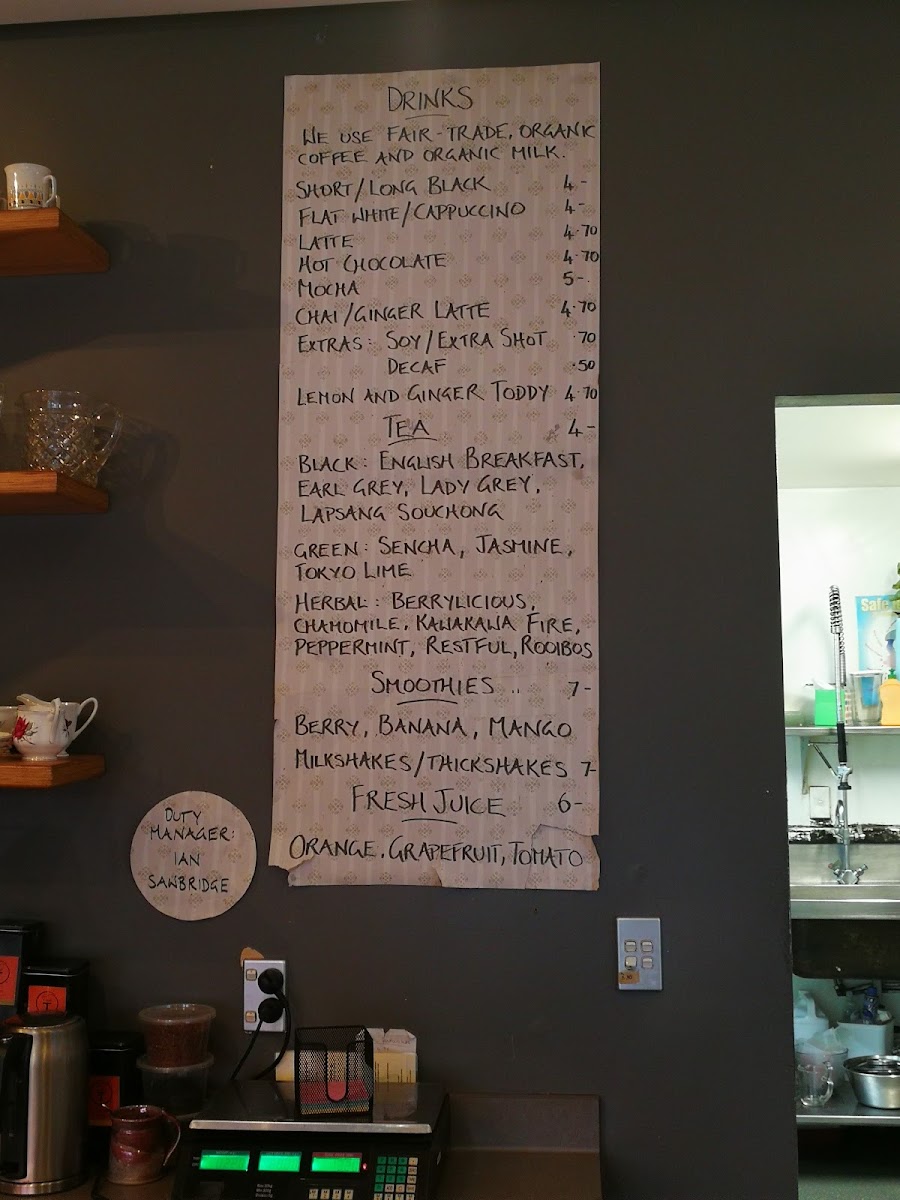 DRINKS
WE USE FAIR-TRADE, ORGANIC
COFFEE AND ORGANIC MILK.
SHORT/LONG BLACK 4-
FLAT WHITE/CAPPUCCINO 4-
LATTE 4.70
HOT CHOCOLATE 4.70
MOCHA 5-
CHAI/GINGER LATTE 4.70
EXTRAS: SOY/EXTRA SHOT .70
DECAF .50
LEMON AND GINGER TODDY 4.70
TEA 4-
BLACK: ENGLISH BREAKFAST,
EARL GREY, LADY GREY,
LAPSANG SOUCHONG
GREEN: SENCHA, JASMINE,
TOKYO LIME
HERBAL: BERRYLICIOUS,
CHAMOMILE, KAWAKAWA FIRE,
PEPPERMINT, RESTFUL, ROOIBOS
SMOOTHIES .. 7-
BERRY, BANANA, MANGO
MILKSHAKES/THICKSHAKES 7-
FRESH JUICE 6-
ORANGE, GRAPEFRUIT, TOMATO
DUTY
MANAGER:
IAN
SAWBRIDGE
Safe